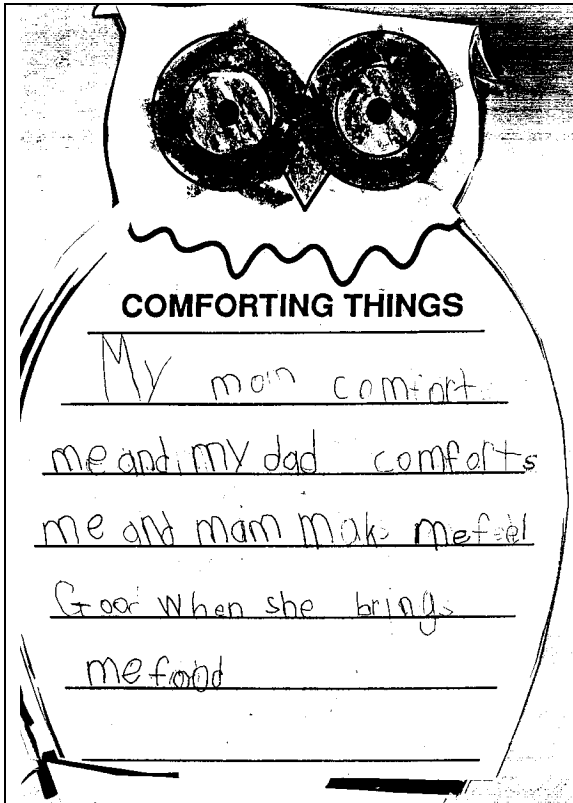 COMFORTING THINGS
My mom comfort
me and my dad comforts
me and mam make me feel
Good when she brings
me food